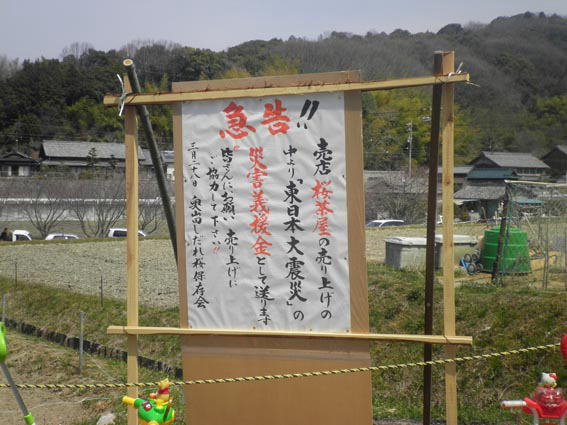 急告!!
売店桜茶屋の売り上げの
中より「東日本大震災」の
災害義援金として送ります
皆さんにお願い売り上げに
ご協力して下さい
三月二八日 奥山しだれ桜保存会